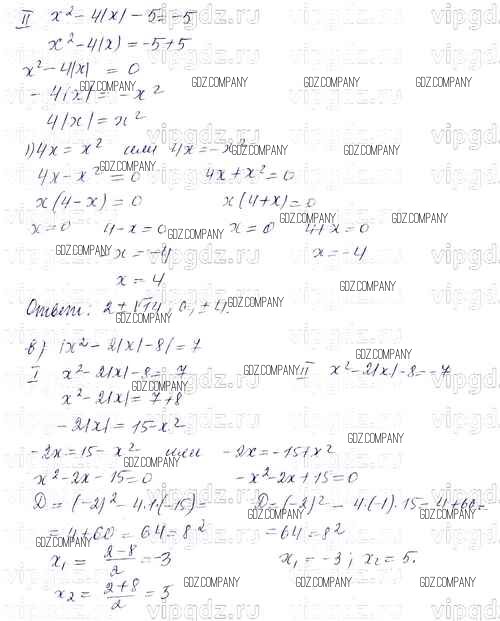 II x² - 4|x| - 5 = -5
x² - 4|x| = -5+5
x² - 4|x| = 0
- 4|x| = - x²
4|x| = x²
1) 4x = x² или 4x = - x²
4x - x² = 0 4x + x² = 0
x(4-x) = 0 x(4+x) = 0
x = 0 4-x = 0 x = 0 4+x = 0
-x = -4 x = -4
x = 4
Ответ: 2 ± √14; 0, ± 4.
в) |x² - 2|x| - 8| = 7
I x² - 2|x| - 8 = 7 II x² - 2|x| - 8 = -7
x² - 2|x| = 7+8
- 2|x| = 15 - x²
- 2x = 15 - x² или - 2x = -15 + x²
x² - 2x - 15 = 0 - x² - 2x + 15 = 0
D = (-2)² - 4·1·(-15) = D = (-2)² - 4·(-1)·15 = 4+60 =
= 4+60 = 64 = 8² = 64 = 8²
x₁ = (2-8)/2 = -3 x₁ = -3; x₂ = 5.
x₂ = (2+8)/2 = 5
GDZ.COMPANY
vipgdz.ru